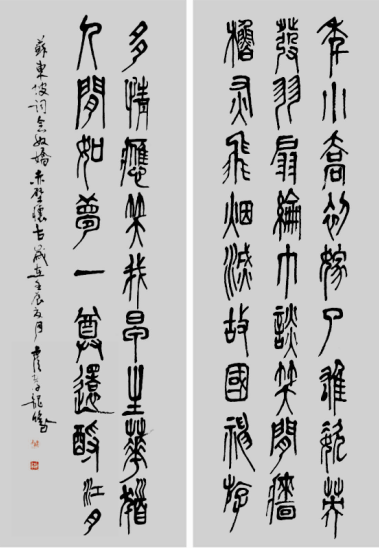 年小喬初嫁了雄姿英
發羽扇綸巾談笑間檣
櫓灰飛烟滅故國神遊
多情應笑我早生華髮
人間如夢一尊還酹江月
蘇東坡詞念奴嬌赤壁懷古歲在壬辰